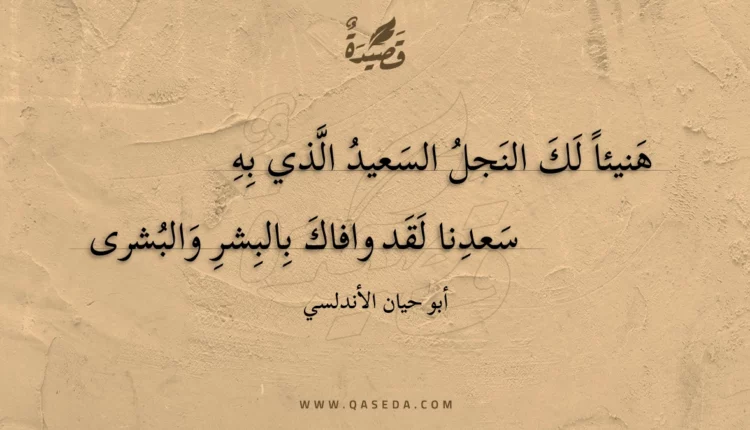 قَصِيْدَةٌ
هَنيئاً لَكَ النَجلُ السَعيدُ الَّذي بِهِ
سَعدِنا لَقَد وافاكَ بِالبِشرِ وَالبُشرى
أبو حيان الأندلسي
WWW.QASEDA.COM